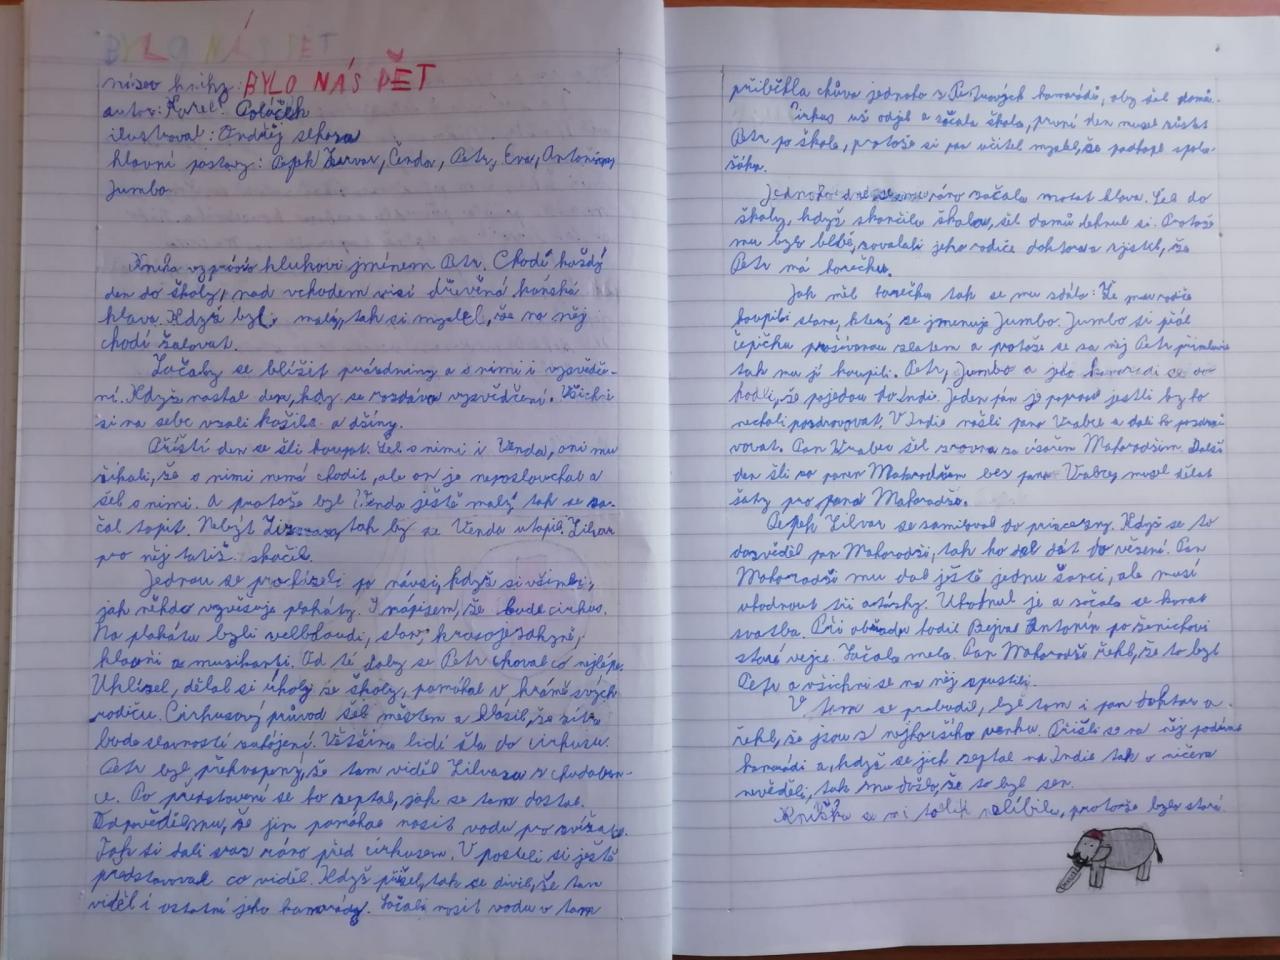 BYLO NÁS PĚT
název knihy: BYLO NÁS PĚT
autor: Karel Poláček
ilustroval: Ondřej Sekora
hlavní postavy: Pepek Zilvar, Čenda, Petr, Eva, Antonín,
Jumbo
Kniha vypráví o klukovi jménem Petr. Chodí každý
den do školy, nad vchodem visí dřevěná koňská
hlava. Když byl malý, tak si myslel, že na něj
chodí žalovat.
Začaly se blížit prázdniny a s nimi i vysvědče-
ní. Když nastal den, kdy se rozdává vysvědčení. Všichni
si na sebe vzali košile a džíny.
Příští den se šli koupat. Šel s nimi i Venda, oni mu
říkali, že s nimi nemá chodit, ale on je neposlouchal a
šel s nimi. A protože byl Venda ještě malý tak se za-
čal topit. Nebýt Zilvara, tak by se Venda utopil. Zilvar
pro něj totiž skočil.
Jednou se procházeli po návsi, když si všimli,
jak někdo vyvěšuje plakáty. S nápisem, že bude cirkus.
Na plakátu byli velbloudi, slon, krasojezdkyně,
klauni a muzikanti. Od té doby se Petr choval co nejlépe.
Uklízel, dělal si úkoly ze školy, pomáhal v krámě svých
rodičů. Cirkusový průvod šel městem a hlásil, že zítra
bude slavností zahájení. Většina lidí šla do cirkusu.
Petr byl překvapený, že tam viděl Zilvara z chudobin-
ce. Po představení se ho zeptal, jak se tam dostal.
Odpověděl mu, že jim pomáhal nosit vodu pro zvířata.
Tak si dali sraz ráno před cirkusem. V posteli si ještě
představoval co viděl. Když přišel, tak se divil, že tam
viděl i ostatní jeho kamarády. Začali nosit vodu v tom
přiběhla chůva jednoho z Petrových kamarádů, aby šel domů.
Cirkus už odjel a začala škola, první den musel zůstat
Petr po škole, protože si pan učitel myslel, že podtrhl spolu-
žáka.
Jednoho dne se mu ráno začala motat hlava. Šel do
školy, když skončila škola, šel domů lehnul si. Protože
mu bylo blbě, zavolali jeho rodiče doktora a zjistil, že
Petr má horečku.
Jak měl horečku tak se mu zdálo: Že mu rodiče
koupili slona, který se jmenuje Jumbo. Jumbo si přál
čepičku prošívanou zlatem a protože se za něj Petr přimluvil
tak mu ji koupili. Petr, Jumbo a jeho kamarádi se do-
hodli, že pojedou do Indie. Jeden pán je poprosil jestli by ho
nechali pozdravovat. V Indii našli pana Vrabce a dali ho pozdra-
vovat. Pan Vrabec šel zrovna za císařem Mahardžou. Další
den šli za panem Mahardžou bez pana Vrabce, musel dělat
šaty pro pana Mahardžu.
Pepek Zilvar se zamiloval do princezny. Když se to
dozvěděl pan Mahardža, tak ho dal dát do vězení. Pan
Mahardža mu dal ještě jednu šanci, ale musí
uhodnout tři otázky. Uhodnul je a začala se konat
svatba. Při obřadu hodil Bejval Antonín po ženichovi
staré vejce. Začala mela. Pan Mahardža řekl, že to byl
Petr a všichni se na něj spustili.
V tom se probudil, byl tam i pan doktor a
řekl, že jsou z nejhoršího venku. Přišli se na něj podívat
kamarádi a, když se jich zeptal na Indii tak o ničem
nevěděli, tak mu došlo, že to byl sen.
Knížka se mi tolik nelíbila, protože byla stará.